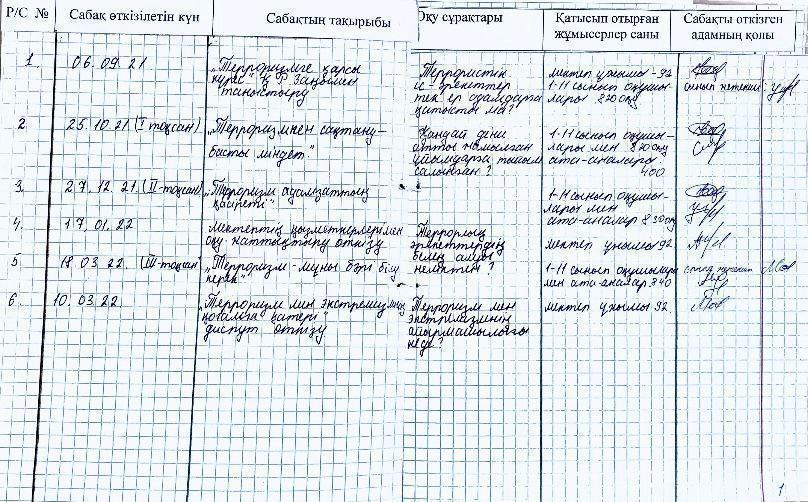 Р/С №
Сабақ өткізілетін күн
Сабақтың тақырыбы
Оқу сұрақтары
Қатысып отырған
жұмысерлер саны
Сабақты откізген
адамның қолы
1.
06.09.21
„Терроризмге қарсы
күрес" ҚР Заңымен
таныстыру
Террористік
іс-әрекеттер
тек ер адамдарға
қатысты ма?
мектеп ұжымы-92
1-11 сынып оқушы-
лары 820 оқу
2
25.10.21 (I тоқсан)
„Терроризмнен сақтану-
басты міндет."
Қандай діни
атты жамылған
ұйымдарға тыйым
салынған?
1-11 сынып оқушы-
лары мен 820 оқу
ата-аналары
400
3.
27.12.21 (II-тоқсан)
„Терроризм адамзаттың
қасіреті"
1-11 сынып оқушы-
лары мен
ата-аналар 830 оқу
4.
17.01.22
мектептің қызметкерлерімен
оқу-жаттықтыру өткізу
Террорлық
әрекеттердің
белең алуы
неліктен?
мектеп ұжымы 92
5.
18.03.22. (III-тоқсан)
„Терроризм-мұны бәрі білу
керек"
1-11 сынып оқушылары
мен ата-аналар 840
6
10.03.22
„Терроризм мен экстремизмнің
қоғамға қатері"
диспут өткізу.
Терроризм мен
экстремизмнің
айырмашылығы
неде?
мектеп ұжымы 92
1